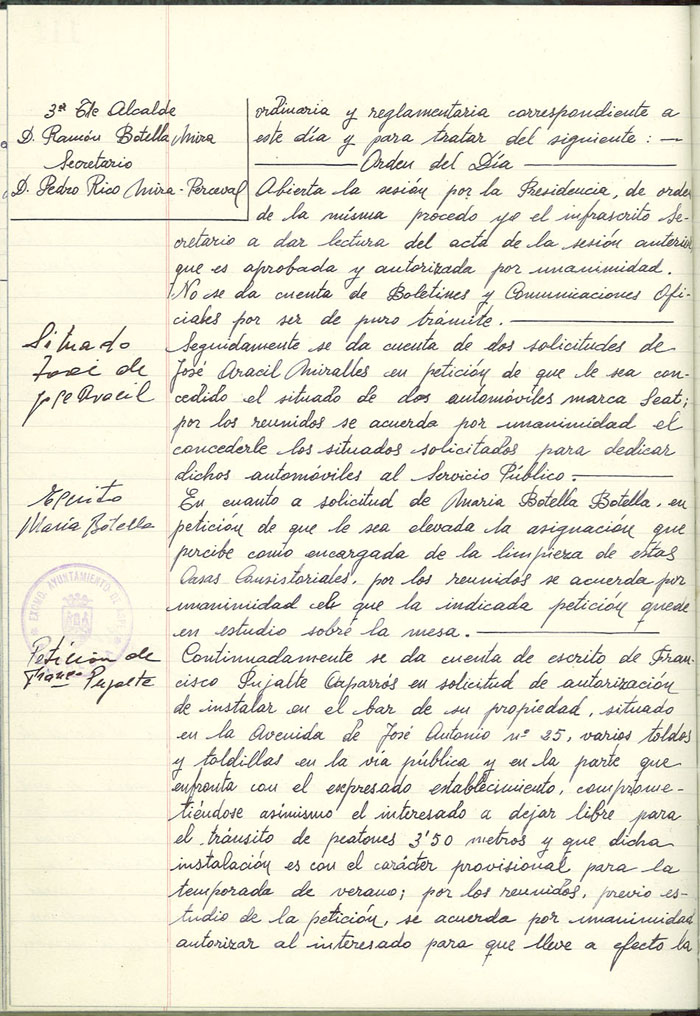 3er Tte Alcalde
D. Ramón Botella Mira
Secretario
D. Pedro Rico Mira-Perceval
ordinaria y reglamentaria correspondiente a
este día y para tratar del siguiente: —
Orden del Día
Abierta la sesión por la Presidencia, de orden
de la misma procedo yo el infrascrito Se-
cretario a dar lectura del acta de la sesión anterior,
que es aprobada y autorizada por unanimidad.
No se da cuenta de Boletines y Comunicaciones Ofi-
ciales por ser de puro trámite.
Situado
José de
Jose Aracil
Seguidamente se da cuenta de dos solicitudes de
José Aracil Miralles en petición de que le sea con-
cedido el situado de dos automóviles marca Seat;
por los reunidos se acuerda por unanimidad el
concederle los situados solicitados para dedicar
dichos automóviles al Servicio Público.
Escrito
María Botella
En cuanto a solicitud de Maria Botella Botella, en
petición de que le sea elevada la asignación que
percibe como encargada de la limpieza de estas
Casas Consistoriales, por los reunidos se acuerda por
unanimidad el que la indicada petición quede
en estudio sobre la mesa.
EXCMO. AYUNTAMIENTO DE
Petición de
Franco Pujalte
Continuadamente se da cuenta de escrito de Fran-
cisco Pujalte Caparrós en solicitud de autorización
de instalar en el bar de su propiedad, situado
en la Avenida de José Antonio nº 25, varios toldos
y toldillas en la vía pública y en la parte que
enfronta con el expresado establecimiento, comprome-
tiéndose asímismo el interesado a dejar libre para
el tránsito de peatones 3'50 metros y que dicha
instalación es con el carácter provisional para la
temporada de verano; por los reunidos, previo es-
tudio de la petición, se acuerda por unanimidad
autorizar al interesado para que lleve a efecto la